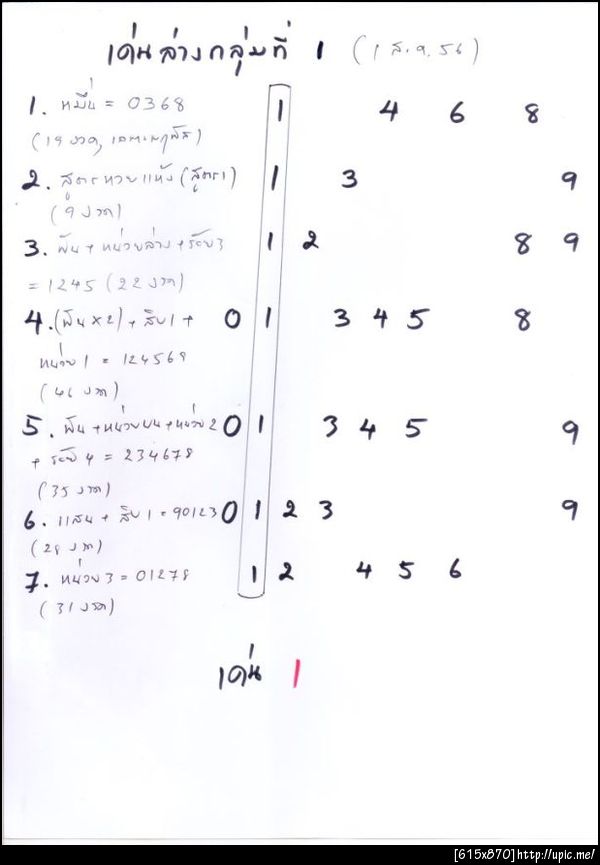 เด่นล่างกลุ่มที่ 1 (1 ส.ค. 56)
1. หมื่น = 0368 1 4 6 8
(19 งวด, เฉพาะพฤหัส)
2. สูตรหวยแห้ง (สูตร1) 1 3 9
(9 งวด)
3. พัน + หน่วยล่าง + ระยะ3 1 2 8 9
= 1245 (22 งวด)
4. (พัน x 2) + สิบ1 + 0 1 3 4 5 8
หน่วย 1 = 124569
(46 งวด)
5. พัน + หน่วยบน + หน่วย 2 0 1 3 4 5 9
+ 4 = 234678
(35 งวด)
6. แสน + สิบ 1 = 90123 0 1 2 3 9
(28 งวด)
7. หน่วย 3 = 01278 1 2 4 5 6
(31 งวด)
เด่น 1
[615x870]http://upic.me/